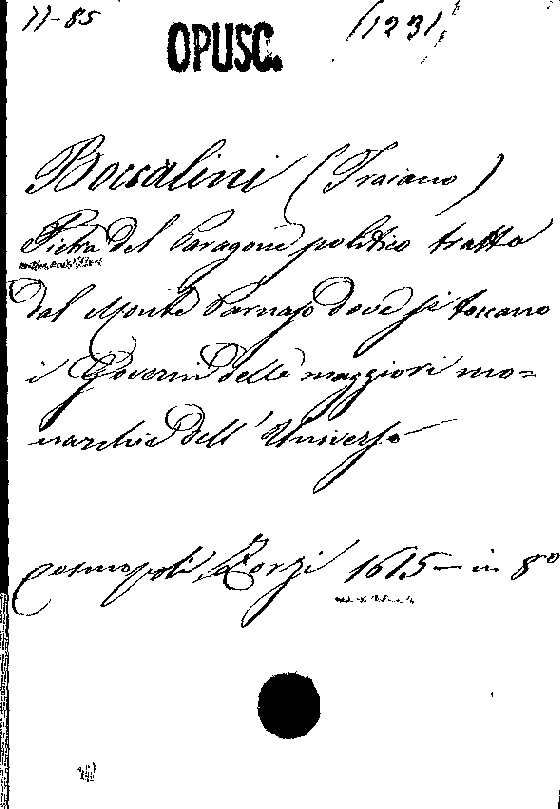 77-85
OPUSC.
(123)
Boccalini (Traiano)
Pietra del Paragone politico tratta
dal Monte Parnaso dove si toccano
i Governi delle maggiori mo=
narchie dell'Universo
Cosmopoli Zorzi 1615 - in 8º